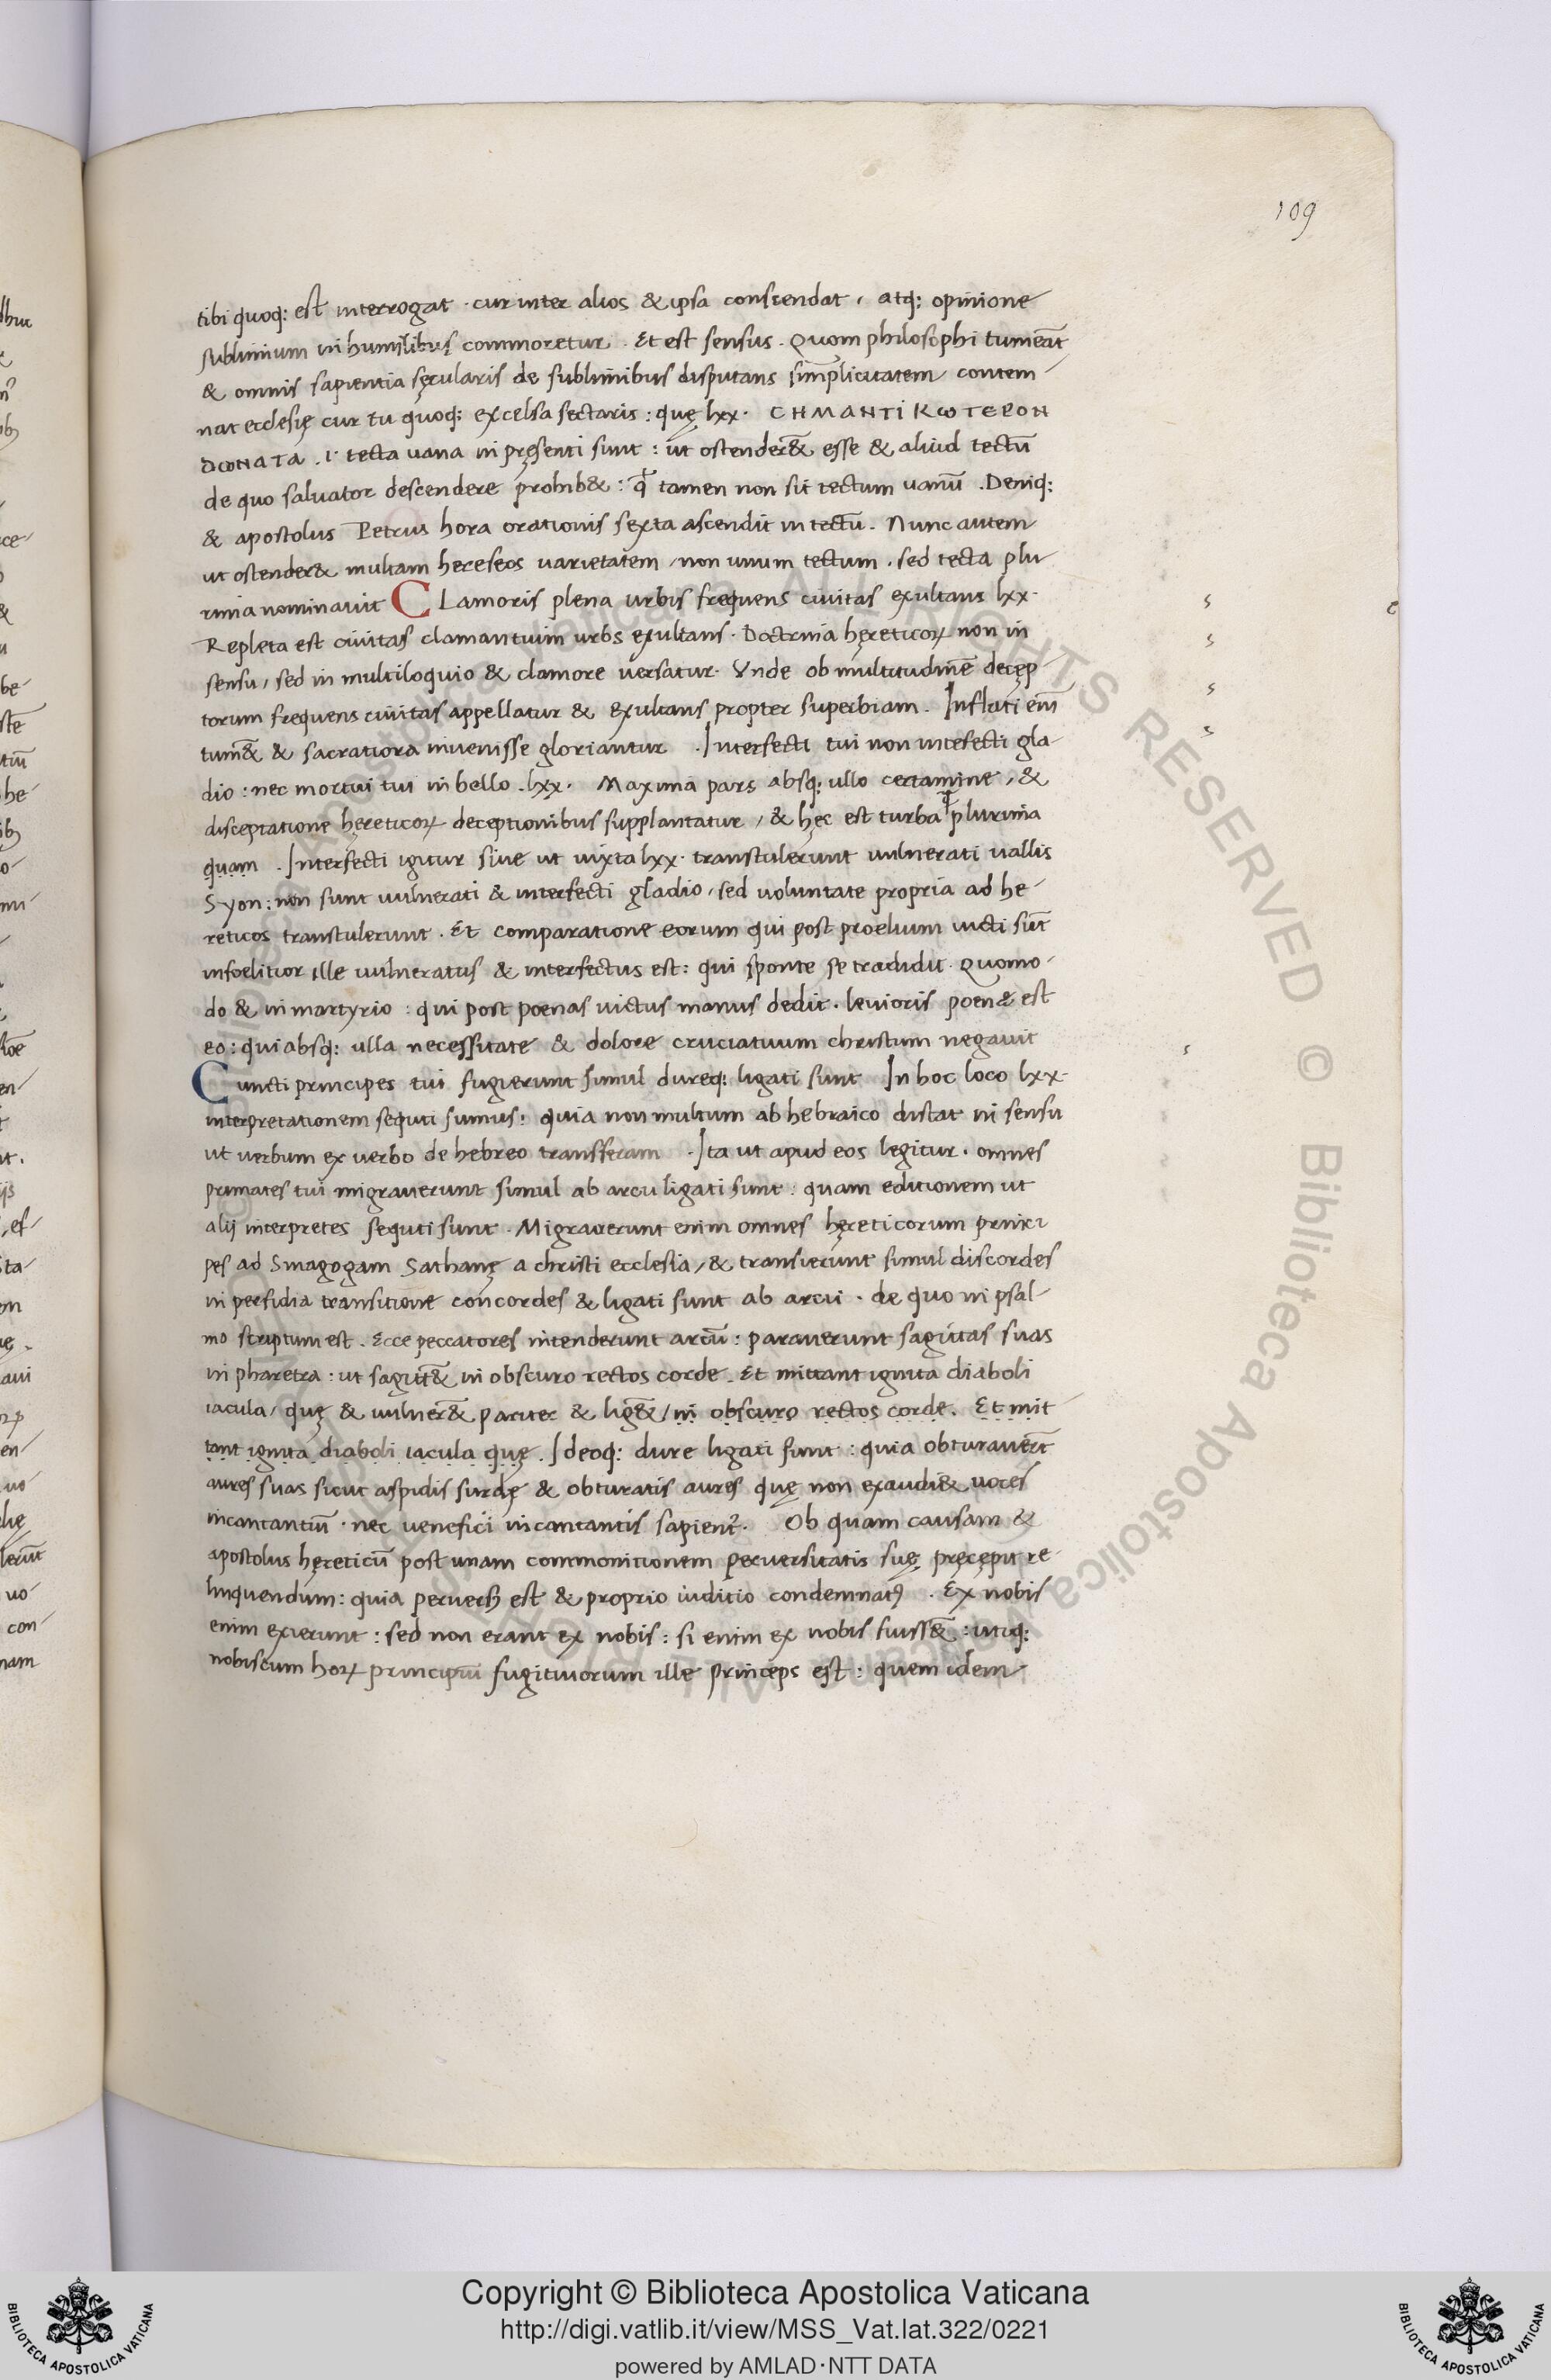 109
tibi quoq: est interrogat · cur inter alios & ipsa conscendat , atq: opinione
sublimium in humilibus commoretur . Et est sensus . Quom philosophi tumeāt
& omnis sapientia sęcularis de sublimibus disputans simplicitatem contem
nat ecclesię cur tu quoq: excelsa sectaris : quę lxx · CHMANTIKωTEPON
DωNATA . i· tecta uana in pręsenti sunt : ut ostender& esse & aliud tectū
de quo saluator descendere prohib& : tamen non sit tectum uanū . Deniq:
& apostolus Petrus hora orationis sexta ascendit in tectū . Nunc autem
ut ostender& multam hereseos uarietatem , non unum tectum . sed tecta plu
rima nominauit CLamoris plena urbis frequens ciuitas exultans lxx ·
Repleta est ciuitas clamantium urbs exultans . Doctrina hęreticoꝝ non in
sensu , sed in multiloquio & clamore uersatur . Vnde ob multitudinē decep
torum frequens ciuitas appellatur & exultans propter superbiam . Inflati eīm
tum& & sacratiora inuenisse gloriantur . Interfecti tui non intefecti gla
dio : nec mortui tui in bello . lxx · Maxima pars absq: ullo certamine , &
disceptatione hęreticoꝝ deceptionibus supplantatur , & hęc est turba plurima
quam . Interfecti igitur siue ut iuxta lxx · transtulerunt uulnerati uallis
Syon : non sunt uulnerati & interfecti gladio , sed uoluntate propria ad he
reticos transtulerunt . Et comparatione eorum qui post proelium uicti sūt
infoelitior ille uulneratus & interfectus est : qui sponte se tradidit . Quomo
do & in martyrio : qui post poenas uictus manus dedit . leuioris poenæ est
eo : qui absq: ulla necessitate & dolore cruciatuum christum negauit
Cuncti principes tui fugierunt simul dureq: ligati sunt In hoc loco lxx ·
interpretationem sequti sumus : quia non multum ab hebraico distat in sensu
ut uerbum ex uerbo de hebreo transferam . Ita ut apud eos legitur . omnes
primates tui migrauerunt simul ab arcu ligati sunt : quam editionem ut
alij interpretes sequti sunt . Migrauerunt enim omnes hęreticorum princi
pes ad Sinagogam Sathanę a christi ecclesia , & transierunt simul discordes
in perfidia transitione concordes & ligati sunt ab arcu . de quo in psal
mo scriptum est . Ecce peccatores intenderunt arcū : parauerunt sagittas suas
in pharetra : ut sagitt& in obscuro rectos corde . Et mittant ignita diaboli
iacula , quę & uulner& pariter & lig& , in obscuro rectos corde . Et mit
tant ignita diaboli iacula quę . Ideoq: dure ligati sunt : quia obturauerūt
aures suas sicut aspidis surdę & obturatis aures quę non exaudi& uoces
incantantiū . nec uenefici incantantis sapient . Ob quam causam &
apostolus hęreticū post unam commonitionem peruersitatis suę pręcepit re
linquendum : quia peruersꝫ est & proprio iuditio condemnatꝰ . Ex nobis
enim exierunt : sed non erant ex nobis : si enim ex nobis fuiss& : utiq:
nobiscum hoꝝ principiū fugitiuorum ille princeps est : quem idem
© Biblioteca Apostolica Vaticana
ALL RIGHTS RESERVED
Copyright © Biblioteca Apostolica Vaticana
http://digi.vatlib.it/view/MSS_Vat.lat.322/0221
powered by AMLAD·NTT DATA
BIBLIOTECA APOSTOLICA VATICANA
BIBLIOTECA APOSTOLICA VATICANA